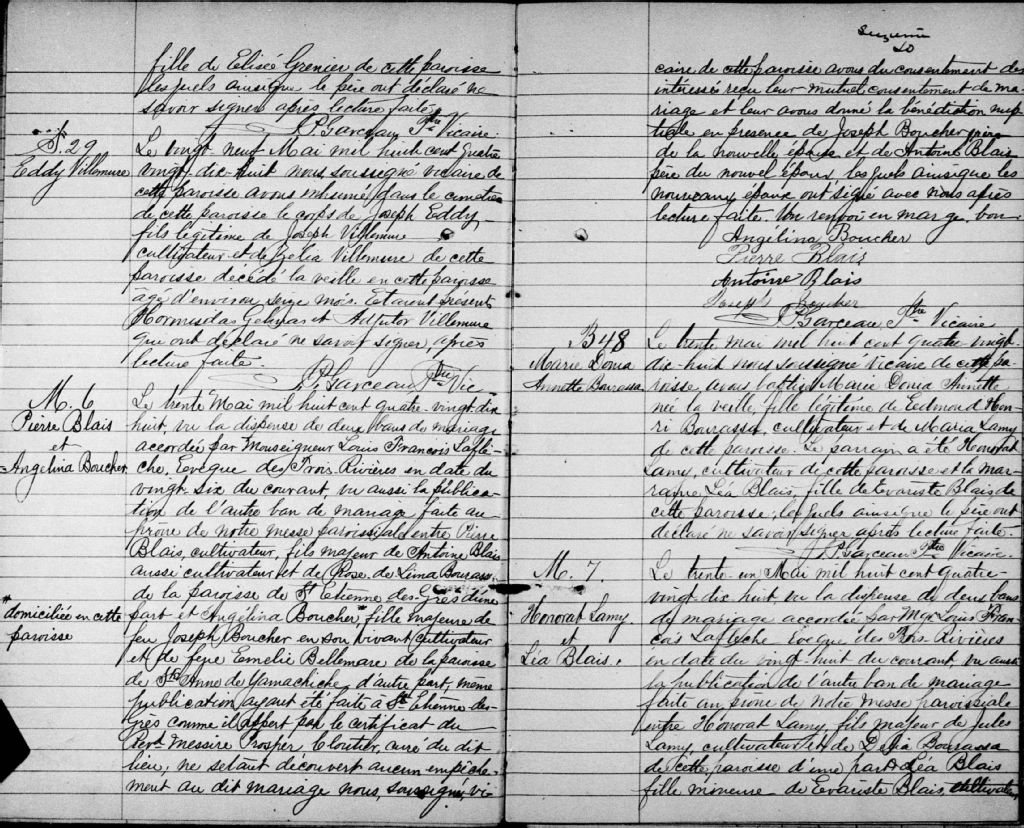 fille de Elisée Grenier de cette paroisse
lesquels ainsique le père ont déclaré ne
savoir signer après lecture faite.
J.P. Garceau Ptre Vicaire
S. 29
Eddy Villemure
Le vingt neuf Mai mil huit cent quatre
vingt dix-huit nous soussigné vicaire de
cette paroisse avons inhumé dans le cimetière
de cette paroisse le corps de Joseph Eddy,
fils légitime de Joseph Villemure
cultivateur et de Zelia Villemure de cette
paroisse décédé la veille en cette paroisse
âgé d'environ seize mois. Etaient présents
Hormisdas Gelinas et Adjutor Villemure
qui ont déclaré ne savoir signer, après
lecture faite.
J.P. Garceau Ptre Vic
M. 6
Pierre Blais
et
Angelina Boucher
Le trente Mai mil huit cent quatre-vingt dix
huit, vu la dispense de deux bans de mariage
accordée par Monseigneur Louis François Laflè-
che, Evêque des Trois Rivières en date du
vingt-six du courant, vu aussi la publica-
tion de l'autre ban de mariage faite au
prône de notre messe paroissiale entre Pierre
Blais, cultivateur, fils majeur de Antoine Blais
aussi cultivateur et de Rose de Lima Bourassa
de la paroisse de St Etienne des Grès d'une
part et Angélina Boucher, fille majeure de
feu Joseph Boucher en son vivant cultivateur
et de feue Emelie Bellemare de la paroisse
de Ste Anne de Yamachiche, d'autre part, même
publication ayant été faite à St Etienne-des-
grès comme il appert par le certificat du
Revd Messire Prosper Cloutier, curé du dit
lieu, ne setant découvert aucun empêche-
ment au dit mariage nous, soussigné, vi-
* domiciliée en cette
paroisse
caire de cette paroisse avons du consentement des
intéressés reçu leur mutuel consentement de ma-
riage et leur avons donné la bénédiction nup-
tiale en présence de Joseph Boucher, frère
de la nouvelle épouse et de Antoine Blais
père du nouvel époux lesquels ainsique les
nouveaux époux ont signé avec nous après
lecture faite. Un renvoi en marge bon
Angélina Boucher
Pierre Blais
Antoine Blais
Joseph Boucher
J.P. Garceau Ptre Vicaire
B 48
Marie Dona
Annette Bourassa
Le trente mai mil huit cent quatre vingt
dix-huit nous soussigné Vicaire de cette pa-
roisse avons baptisé Marie Dona Annette
née la veille, fille légitime de Edmond Hen-
ri Bourassa, cultivateur et de Maria Lamy
de cette paroisse. Le parrain a été Honorat
Lamy, cultivateur de cette paroisse et la mar-
raine Léa Blais, fille de Evariste Blais de
cette paroisse, lesquels ainsique le père ont
déclaré ne savoir signer après lecture faite.
J.P. Garceau Ptre Vicaire
M. 7.
Honorat Lamy
et
Léa Blais.
Le trente-un Mai mil huit cent quatre-
vingt-dix huit, vu la dispense de deux bans
de mariage accordée par Mgr Louis Fran-
çois Laflèche Evêque des Trois-Rivières
en date du vingt-huit du courant, vu aussi
la publication de l'autre ban de mariage
faite au prône de notre messe paroissiale
entre Honorat Lamy, fils majeur de Jules
Lamy, cultivateur et de Delia Bourassa
de cette paroisse d'une part et Léa Blais
fille mineure de Evariste Blais, cultivateur,